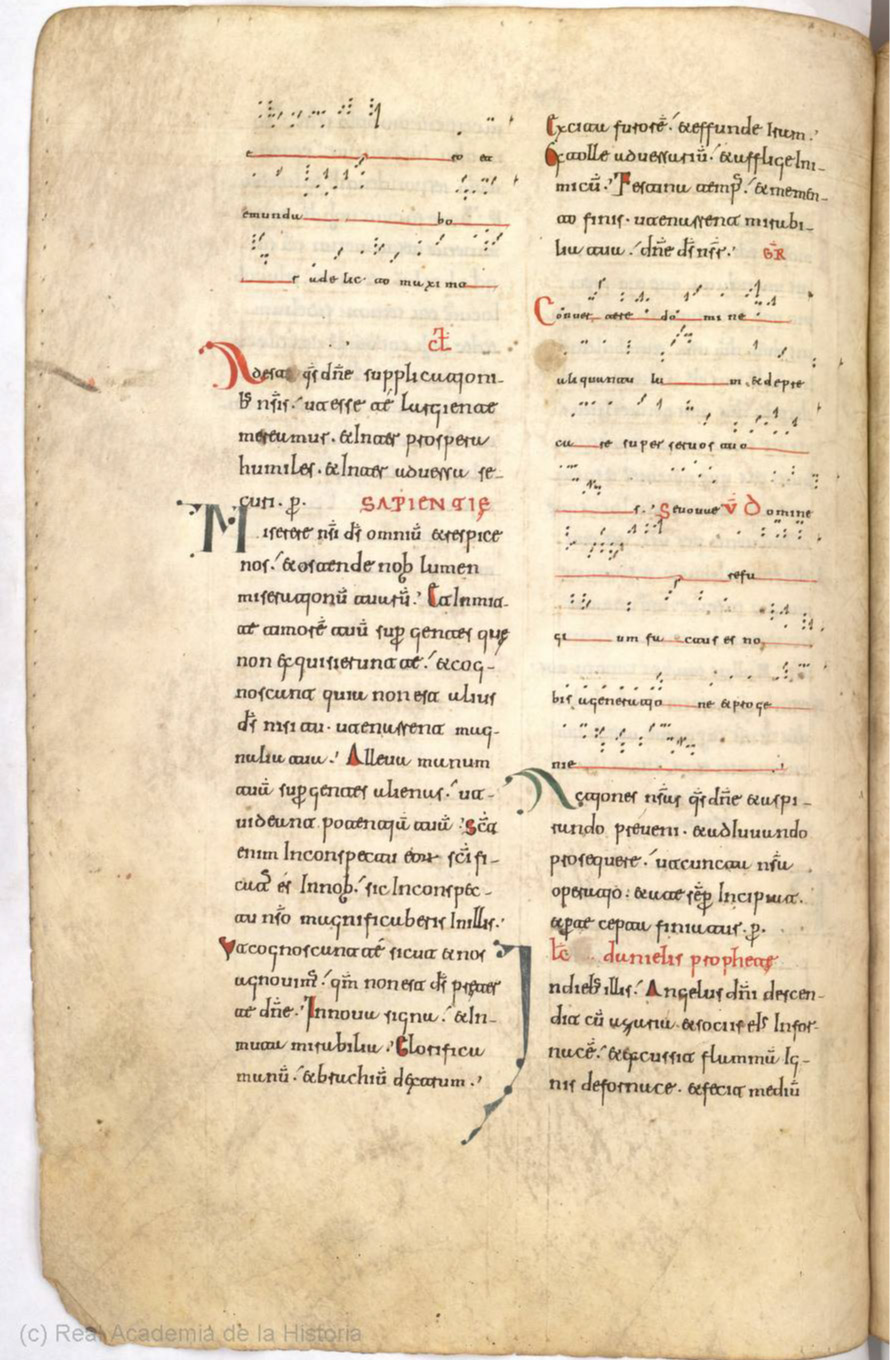 e to et
emunda bo
r a delic to maximo
Adesto qs dne supplicationi-
bs nris. ut esse te largiente
mereamur. et Inter prospera
humiles. et Inter aduersa se-
curi. p.
SAPIENTIE
Miserere nri ds omniū et respice
nos. et ostende nob lumen
miserationū tuarū. Et Inmit-
te timorē tuū sup gentes que
non exquisierunt te. et cog-
noscant quia non est alius
ds nisi tu. ut enarrent mag-
nalia tua. Alleua manum
tuā sup gentes alienas. ut
uideant potentiā tuā. sct
enim Inconspectu eor scifi-
catus es Innob. sic Inconspec-
tu nro magnificaberis Inillis.
Ut cognoscant te sicut et nos
agnouim. qm non est ds preter
te dne. Innoua signa. et In-
muta mirabilia. Glorifica
manū. et brachiū dextrum.
Excita furorē. et effunde Iram.
Et tolle aduersariū. et afflige Ini-
micū. Festina temp. et memen-
to finis. ut enarrent mirabi-
lia tua. dne ds nr. GR
Conuer tere do mi ne
aliquantu lu m. et depre
ca re super seruos tuo
s. Seuouae V Domine
refu
gi um fa ctus es no
bis a generatio ne et proge
nie
Actiones nras qs dne et aspi-
rando preueni. et adIuuando
prosequere. ut cuncta nra
operatio. et a te sep Incipiat.
et p te cepta finiatur. p.
lc danielis prophete
Indieb illis. Angelus dni descen-
dit cū azaria. et sociis eIs Infor-
nacē. et excussit flammā Ig-
nis defornace. et fecit mediū
(c) Real Academia de la Historia